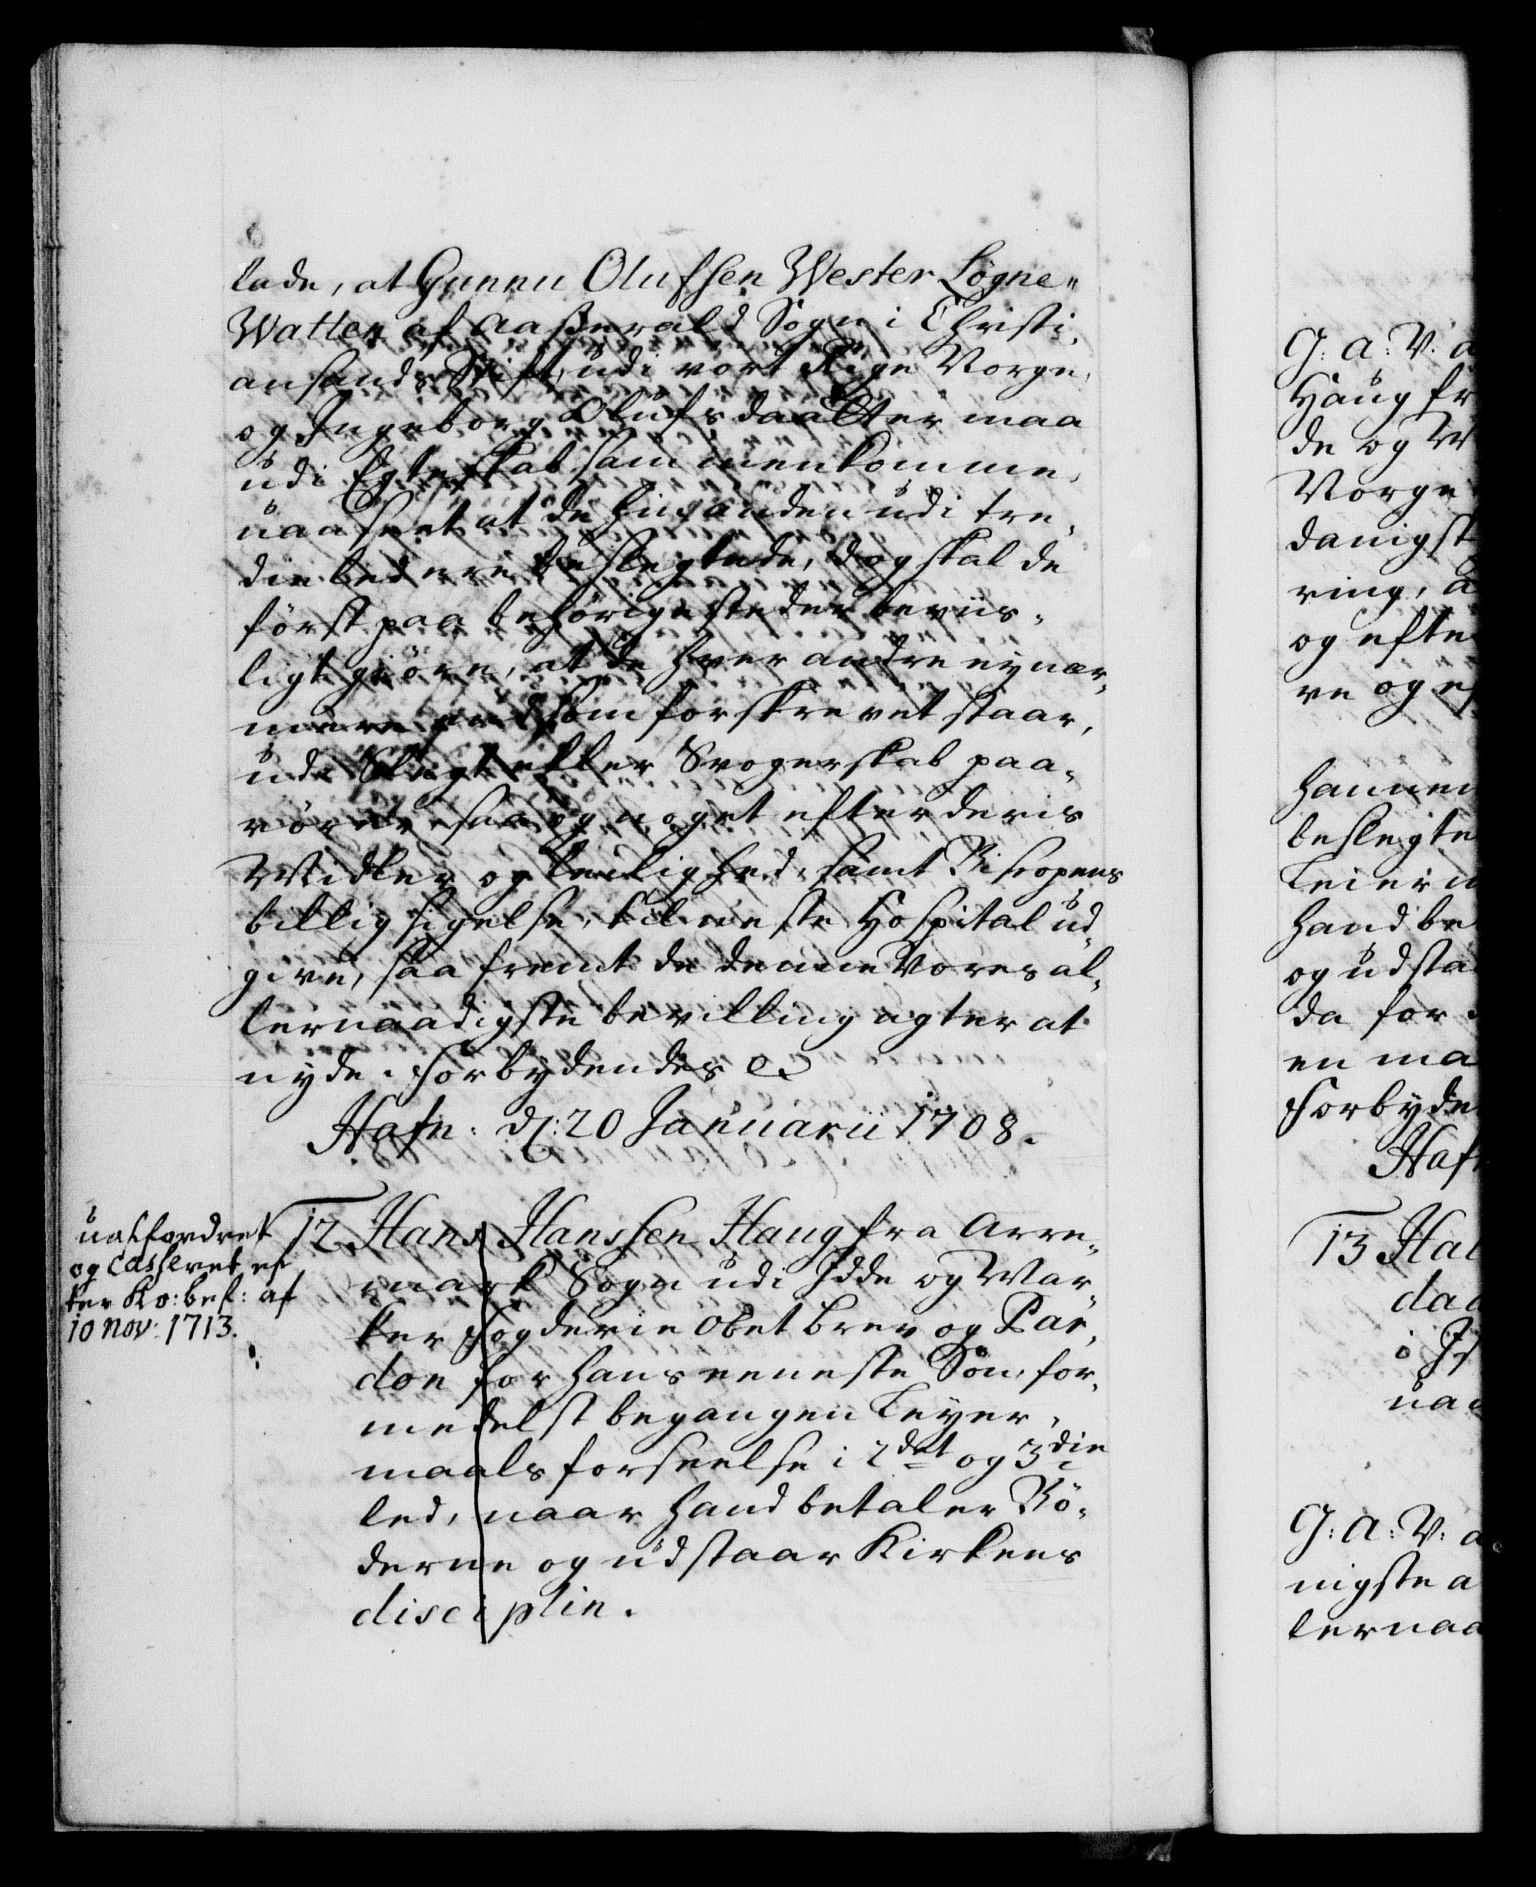 lade, at Gunnu Olufsen Wester Løgne„
Watten af Aaßerald Sogn i Christi,
ansands Stift, udi vort Rige Norge,
og Ingeborg Olufsdaatter maa
udi Egteskab sammenkomme,
uaanseet at de hinanden udi tre,
die led ere beslegtede, dog skal de
først paa behørige steder beviis,
ligt giøre, at de hver andre ey nær,
mere end som forskrevet staar,
udi Slegt eller Svogerskab paa,
rører, saa og noget efter deris
Midler og leilighed, samt Bispens
billig sigelse, til neste Hospital ud,
give, saa fremt de denne Vores al,
lernaadigste bevilling agter at
nyde. Forbydendes &
Hafn: d: 20 Januarii 1708.
uaffordret
og casseret ef
ter Ko: bef: af
10 Nov: 1713.
12. Hans Hanssen Haug fra Arre,
mark Sogn udi Idde og Mar,
ker Fogderie Obet brev og Par,
don for hans eeneste Søn, for,
medelst begangen Leyer,
maals forseelse i 2det og 3die
led, naar hand betaler Bø,
derne og udstaar Kirkens
disciplin.
G: A: V: a
Haug fr
de og M
Norge
danigst
ring, a
og efte
re og ef
hannem
beslegte
Leierm
hand be
og udsta
da for
en ma
Forbyde
Hafn
13 Hal
daa
i Id
uaa
G: A: V: a
nigste a
lernaa